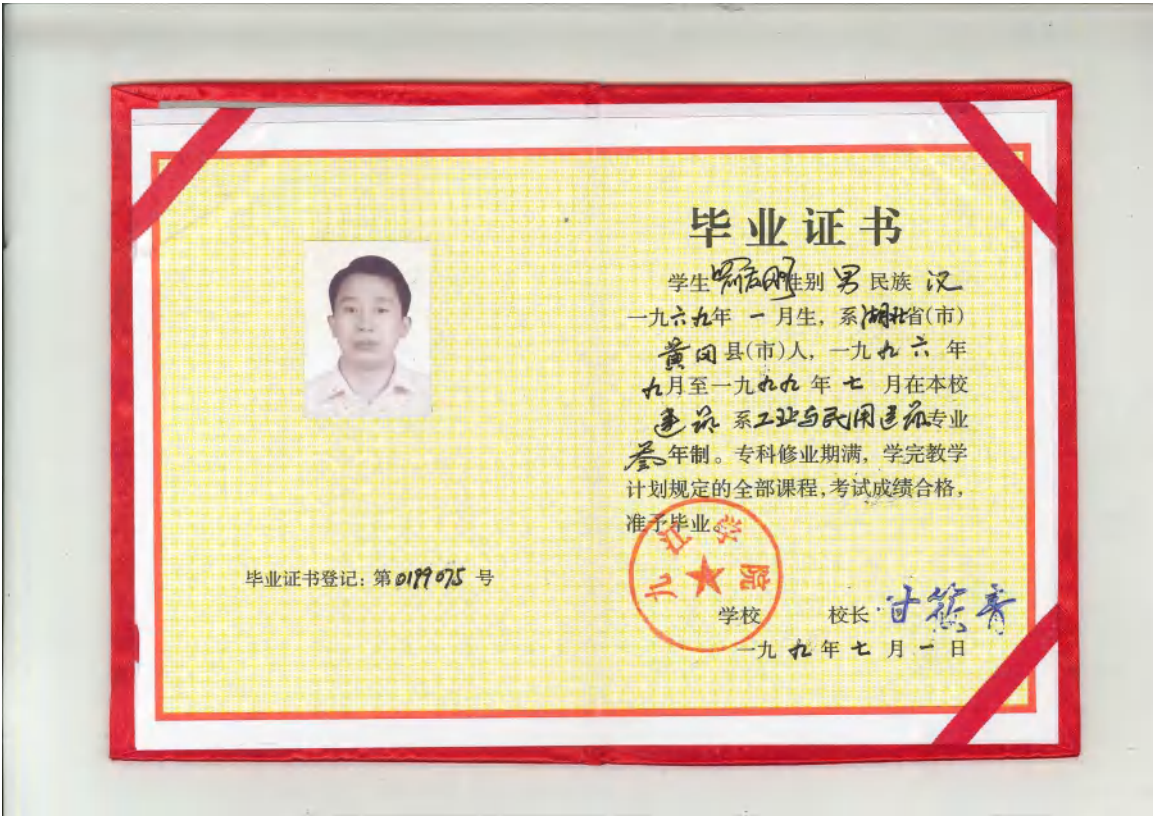 毕业证书
学生 性别 男 民族 汉
一九六九年 一 月生，系湖北省(市)
黄冈县(市)人，一九九六 年
九月至一九九九 年 七 月在本校
建筑 系工业与民用建筑专业
叁年制。专科修业期满，学完教学
计划规定的全部课程，考试成绩合格，
准予毕业。
九江学院
毕业证书登记：第0199075 号
学校 校长 甘筱青
一九九年七月一日